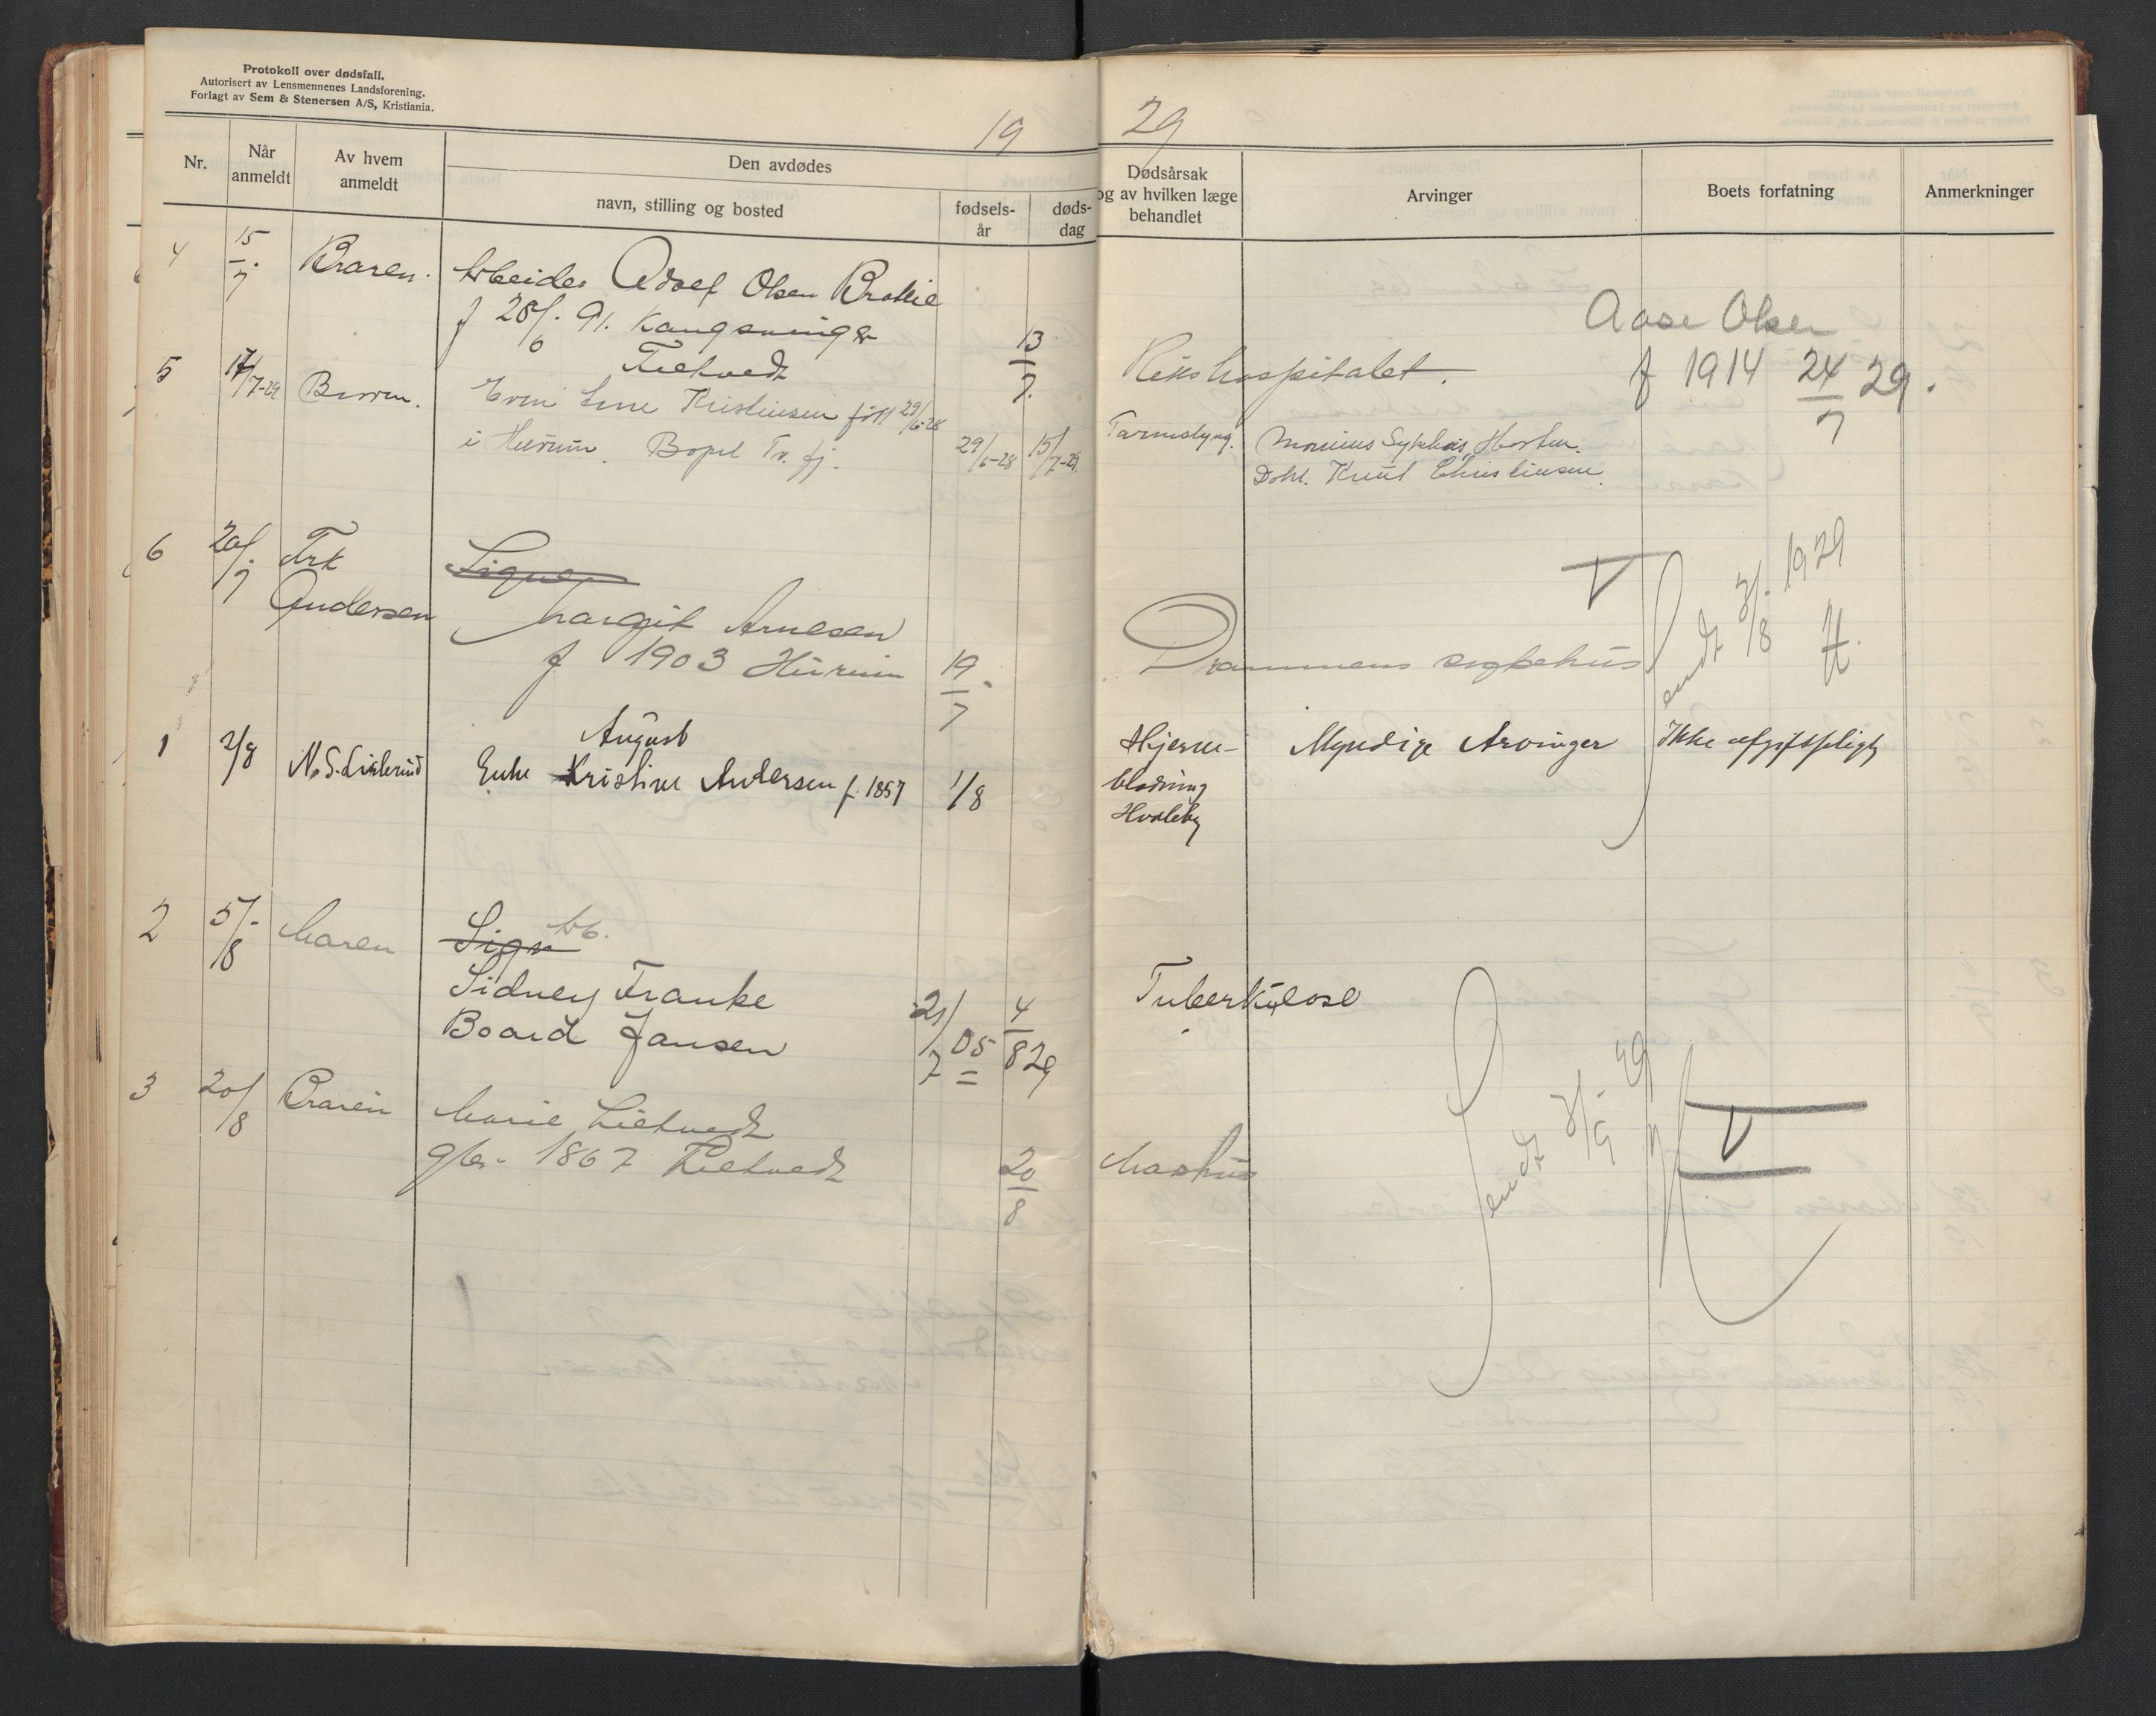 Protokoll over dødsfall.
Autorisert av Lensmennenes Landsforening.
Forlagt av Sem & Stenersen A/S, Kristiania.
19 29
Nr.
Når anmeldt
Av hvem anmeldt
Den avdødes
navn, stilling og bosted
fødsels-år
døds-dag
Dødsårsak og av hvilken læge behandlet
Arvinger
Boets forfatning
Anmerkninger
4 15/7. Braren. Arbeider Adolf Olsen
f 28/6. 91. Kongsvinger 13/7.
Rikshospitalet.
Aase Olsen
f 1914 24/7 29.
5 17/7-29 Kristiansen født 29/6-28
i Hurum. Bopel Tv. fj. 29/6-28 15/7-29.
Tarmslyng. Sykehus, Horten.
Knut Christiansen.
6 20/7. Frk Andersen
Margit Arnesen
f 1903 Hurum 19/7.
Drammens sykehus
Sendt 3/8. 1929
1 2/8 August
Enke Kristine Andersen f. 1857 1/8
Hjerne-
blødning
Hvaleby
Myndige Arvinger
Ikke afgiftspligtg
2 5/8. Maren Sign
Sidney Franke
Board Jansen 21/7 05 4/8 29
Tuberkulose
3 20/8 Braren Marie
gbr. 1867 20/8
Sendt 3/9. 29